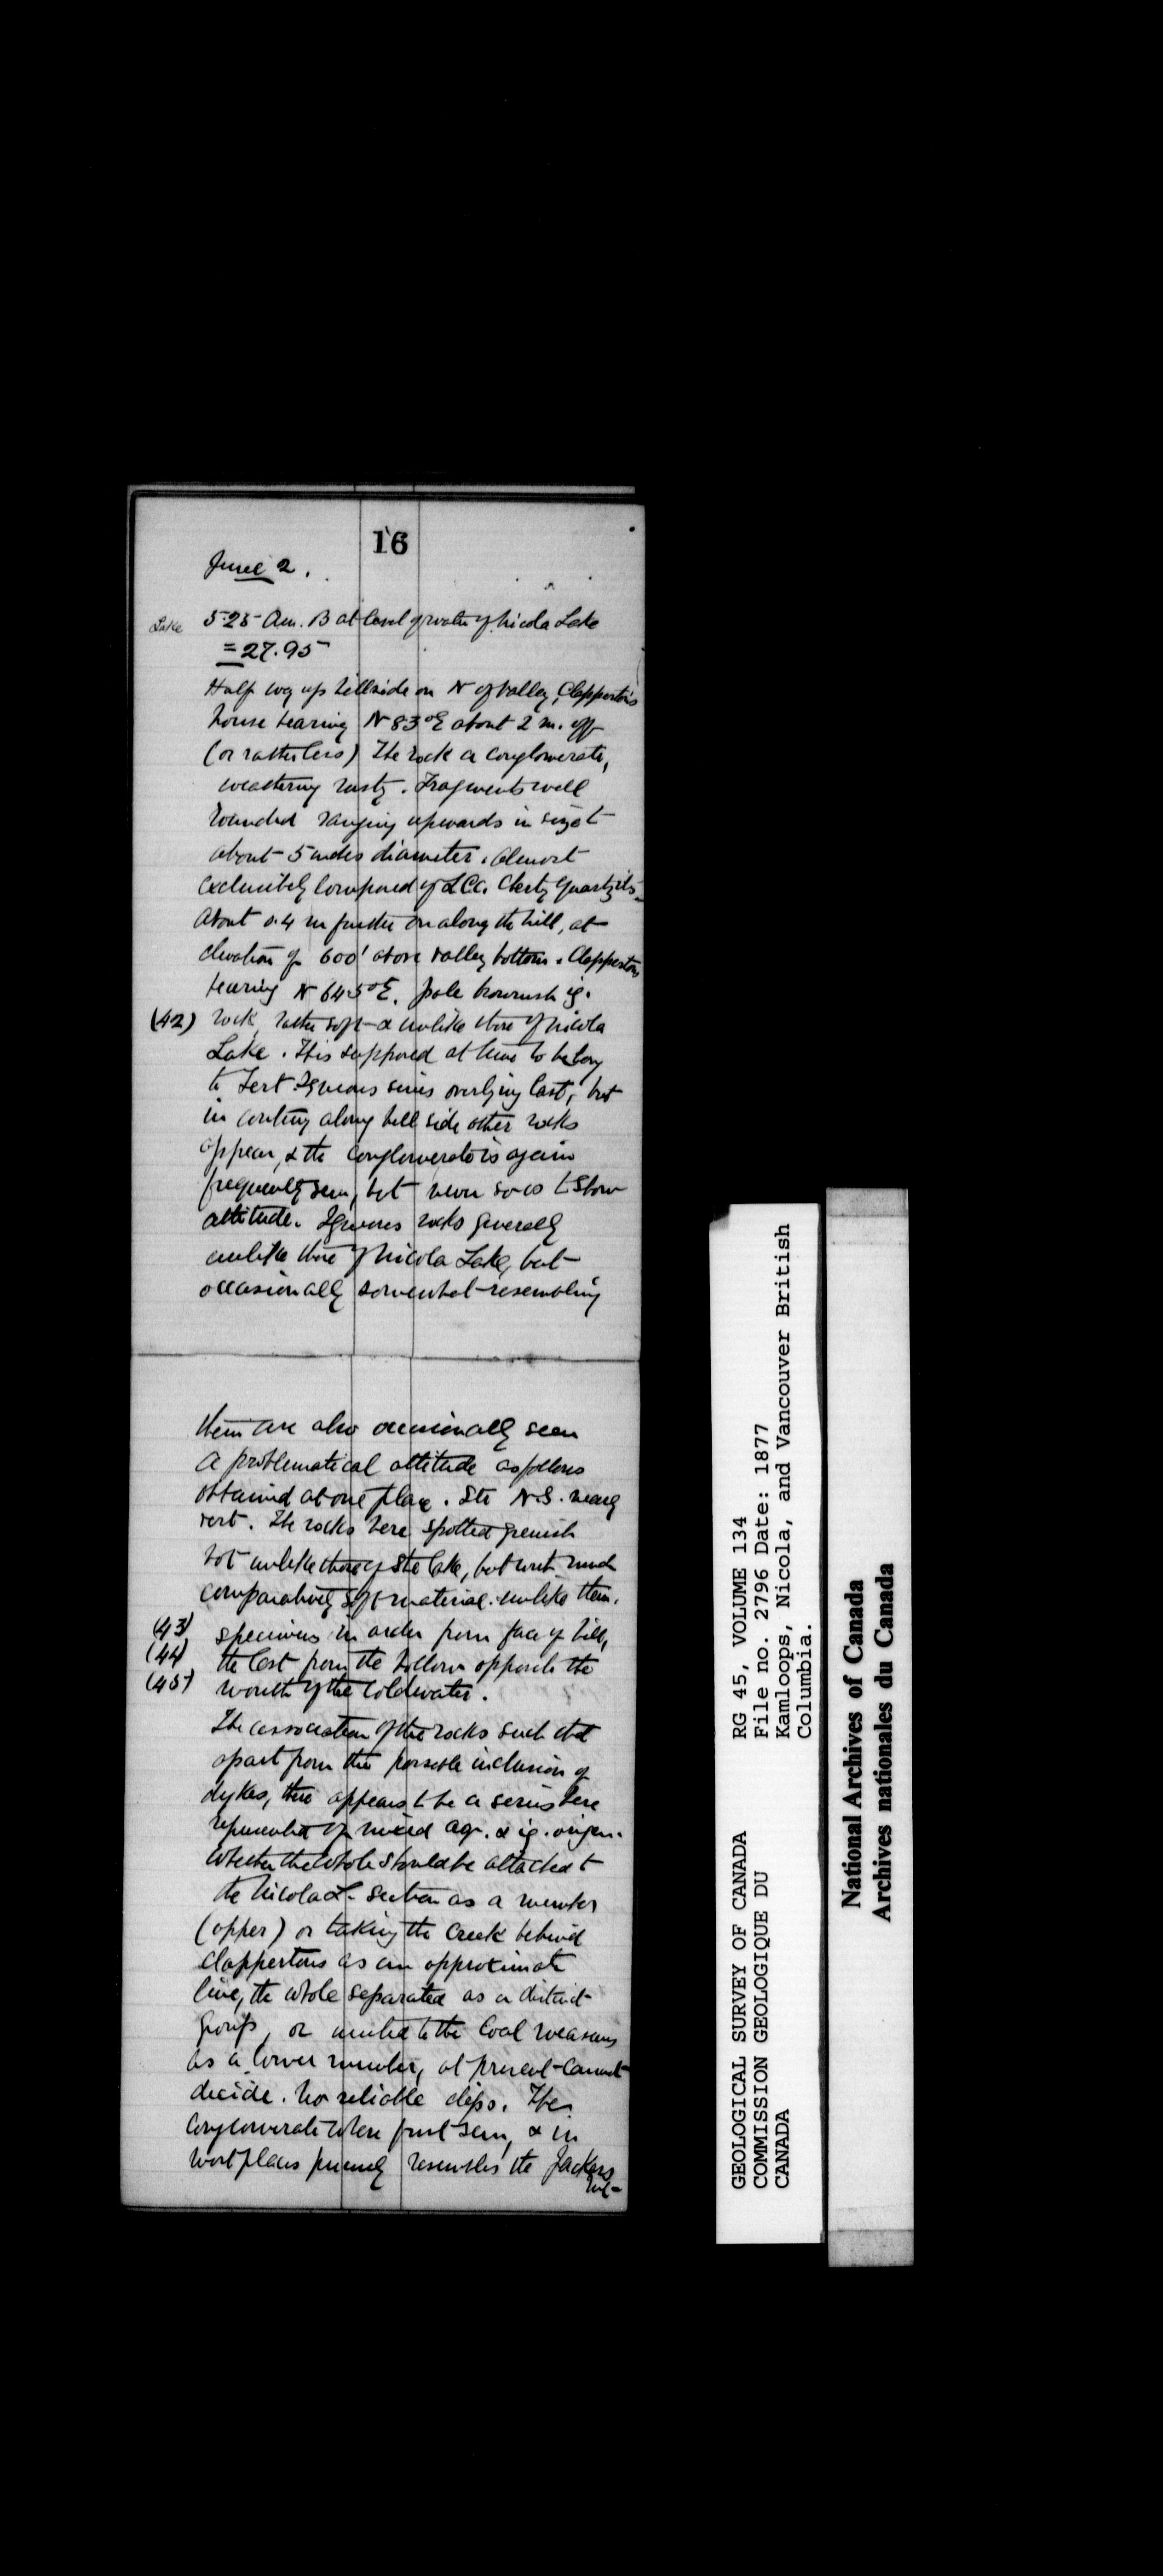 16
June 2.
Lake 5.25 Am. B at level of water of Nicola Lake
= 27.95
Half way up hillside on N of valley, Clapperton's
house bearing N 83° E about 2 m. off
(or rather less) The rock a conglomerate,
weathering rusty. Fragments well
rounded ranging upwards in size to
about 5 inches diameter. Almost
exclusively composed of L.CC. Cherty quartzite
About 0.4 m further on along the hill, at
elevation of 600' above valley bottom. Clappertons
bearing N 64.5° E. pale brownish ig.
(42) rock, rather soft & unlike those of Nicola
Lake. This supposed at time to belong
to Tert Igneous series overlying last, but
in conting along hill side other rocks
appear, & the conglomerate is again
frequently seen, but never so as to show
attitude. Igneous rocks generally
unlike those of Nicola Lake, but
occasionally somewhat resembling
them are also occasionally seen
A problematical attitude as follows
obtained at one place. Stk N.S. nearly
vert. The rocks here spotted greenish
not unlike those of the lake, but with much
comparatively soft material unlike them.
(43) specimens in order from face of hill,
(44) the last from the hollow opposite the
(45) mouth of the Coldwater.
The association of the rocks such that
apart from the possible inclusion of
dykes, there appears to be a series here
represented of mixed aq. & ig. origin.
Whether the whole should be attached to
the Nicola L. section as a member
(upper) or taking the creek behind
Clappertons as an approximate
line, the whole separated as a distinct
group, or united to the Coal measures
as a lower member, at present cannot
decide. No reliable dips. The
conglomerate where first seen, & in
most places precisely resembles the Jackass
Mt
GEOLOGICAL SURVEY OF CANADA
COMMISSION GEOLOGIQUE DU
CANADA
RG 45, VOLUME 134
File no. 2796 Date: 1877
Kamloops, Nicola, and Vancouver British
Columbia.
National Archives of Canada
Archives nationales du Canada